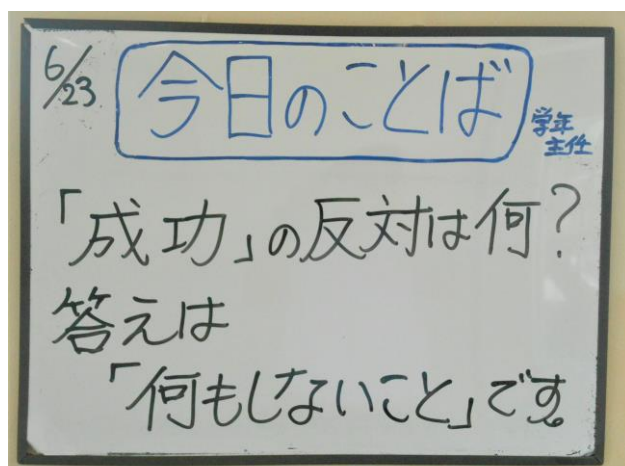 6/23
今日のことば
学年
主任
「成功」の反対は何?
答えは
「何もしないこと」です。